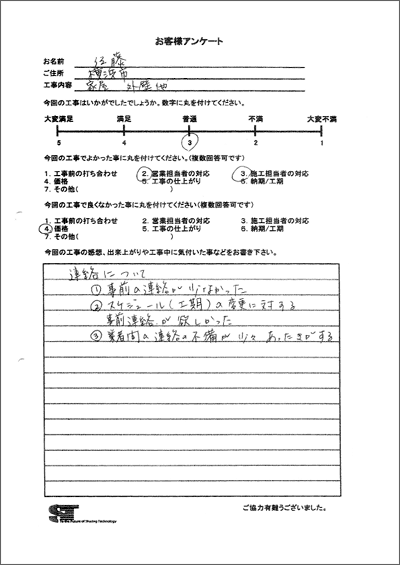 お客様アンケート
お名前 佐藤
ご住所 横浜市
工事内容 家屋 外壁 他
今回の工事はいかがでしたでしょうか。数字に丸を付けてください。
大変満足 満足 普通 不満 大変不満
5 4 3 2 1
今回の工事でよかった事に丸を付けてください。(複数回答可です)
1. 工事前の打ち合わせ 2. 営業担当者の対応 3. 施工担当者の対応
4. 価格 5. 工事の仕上がり 6. 納期/工期
7. その他( )
今回の工事で良くなかった事に丸を付けてください(複数回答可です)
1. 工事前の打ち合わせ 2. 営業担当者の対応 3. 施工担当者の対応
4. 価格 5. 工事の仕上がり 6. 納期/工期
7. その他( )
今回の工事の感想、出来上がりや工事中に気付いた事などをお書き下さい。
連絡について
① 事前の連絡が少なかった
② スケジュール(工期)の変更に対する
事前連絡が欲しかった
③ 業者間の連絡の不備が少々あった気がする
ST
To the Future of Sharing Technology
ご協力有難うございました。